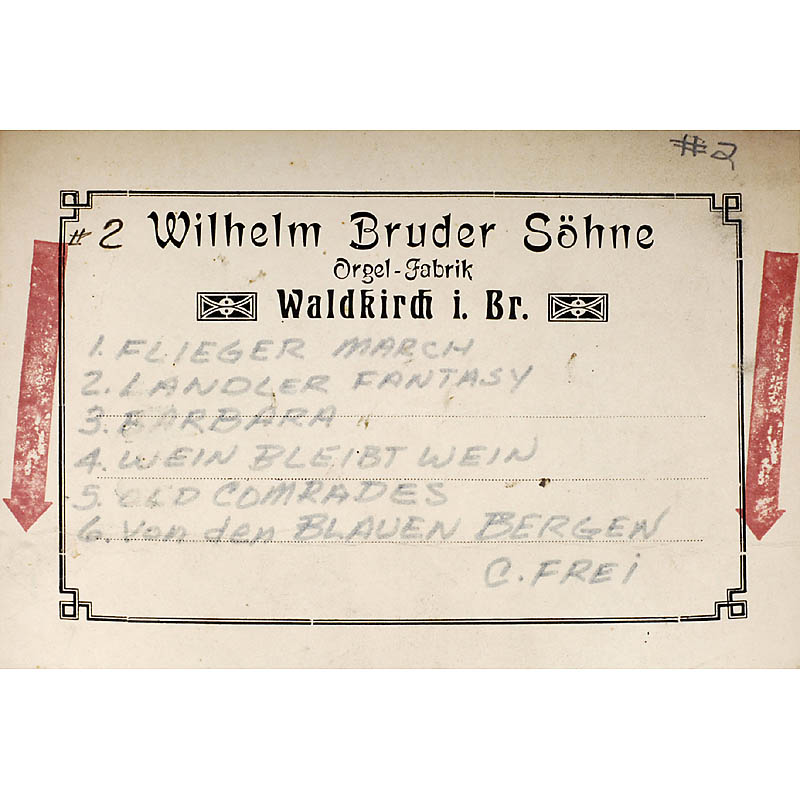 #2
# 2 Wilhelm Bruder Söhne
Orgel-Fabrik
Waldkirch i. Br.
1. FLIEGER MARCH
2. LANDLER FANTASY
3. BARBARA
4. WEIN BLEIBT WEIN
5. OLD COMRADES
6. Von den BLAUEN BERGEN
C. FREI